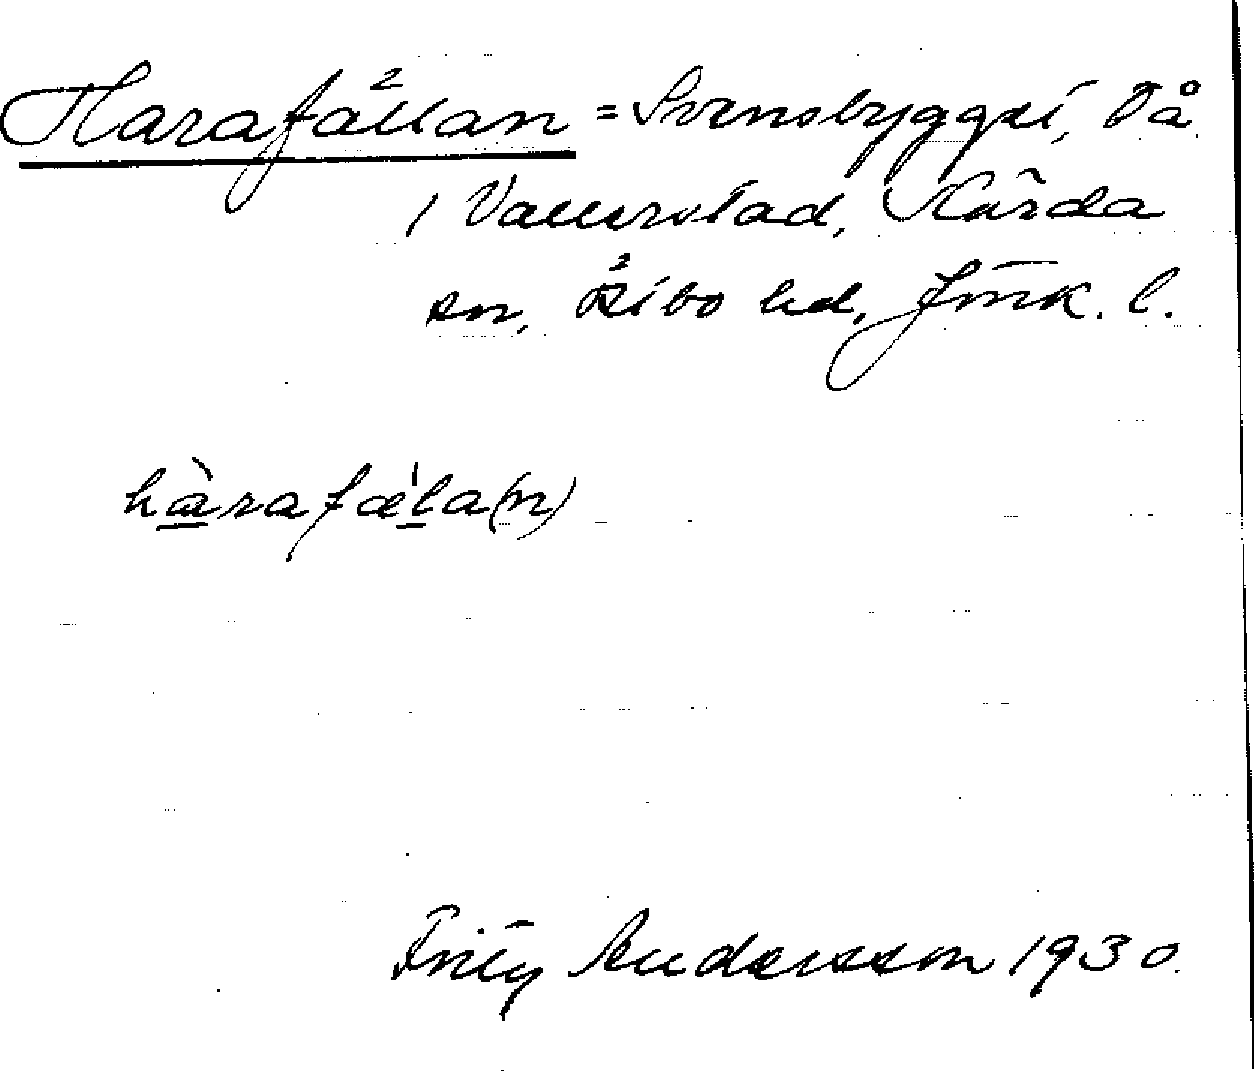 Harafällan = Svensbygget, Då
i Vallerstad, Kärda
sn, Östbo hd, Jönk. l.
hàrafǽla(n)
Fritz Andersson 1930.